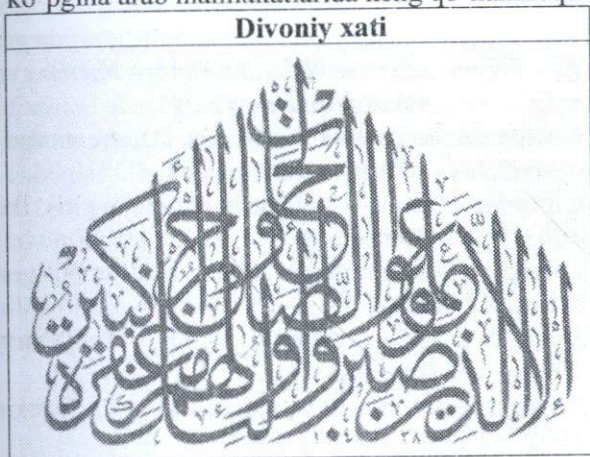 Divoniy xati
إلا الذين صبروا وعملوا الصالحات أولئك لهم مغفرة وأجر كبير